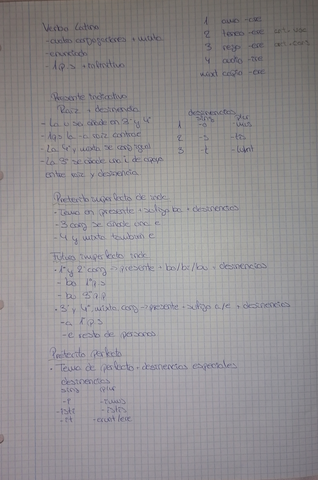 Verbo latino
- cuatro conjugaciones + mixta
- enunciado
- 1 p.s + infinitivo
1 amo -are
2 teneo -ere
3 rego -ere
4 audio -ire
mixt capio -ere
Presente indicativo
Raíz + desinencia
- La u se añade en 3ª y 4ª
- 1ps la -a raíz contrae
- La 4ª y mixta se conj igual
- La 3ª se añade una i de apoyo
entre raíz y desinencia
desinencias
sing plu
1 -o -mus
2 -s -tis
3 -t -unt
Pretérito imperfecto de indic
- Tema en presente + sufijo ba + desinencias
- 3 conj se añade una e
- 4 y mixta también e
Futuro imperfecto indic
- 1ª y 2ª conj -> presente + bo/be/bu + desinencias
- bo 1ª p.s
- bu 3ª p.p
- 3ª y 4ª mixta conj -> presente + sufijo a/e + desinencias
- a 1ª p.s
- e resto de personas
Pretérito perfecto
- Tema de perfecto + desinencias especiales
desinencias
sing plur
-i -imus
-isti -istis
-it -erunt/ere